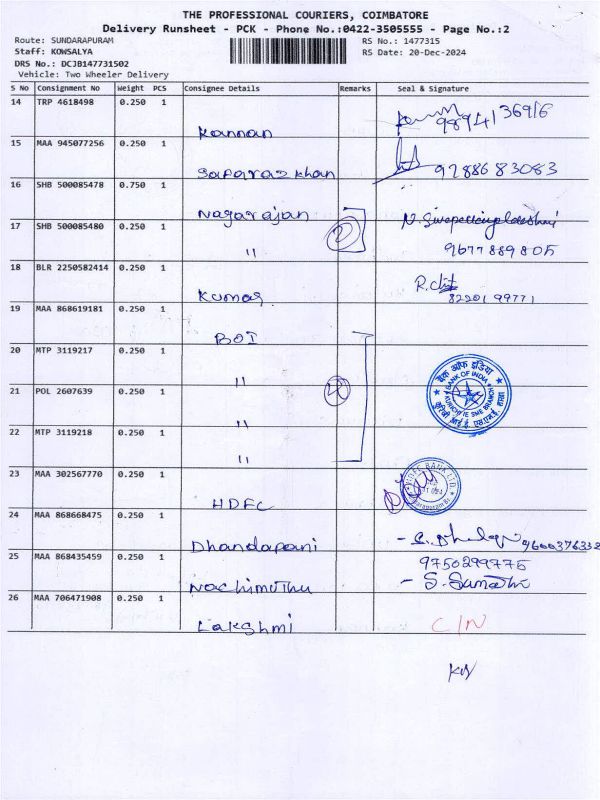 THE PROFESSIONAL COURIERS, COIMBATORE
Delivery Runsheet - PCK - Phone No.:0422-3505555 - Page No.:2
Route: SUNDARAPURAM RS No.: 1477315
Staff: KOWSALYA RS Date: 20-Dec-2024
DRS No.: DCJB147731502
Vehicle: Two Wheeler Delivery
S No Consignment No Weight PCS Consignee Details Remarks Seal & Signature
14 TRP 4618498 0.250 1
Kannan
15 MAA 945077256 0.250 1
Saparaz khan 9288683083
16 SHB 500085478 0.750 1
Nagarajan
17 SHB 500085480 0.250 1 2
" 9677889805
18 BLR 2250582414 0.250 1
Kumar 8220199771
19 MAA 868619181 0.250 1
BOI
20 MTP 3119217 0.250 1
" बैंक ऑफ इंडिया
BANK OF INDIA
21 POL 2607639 0.250 1 4
"
22 MTP 3119218 0.250 1
"
23 MAA 302567770 0.250 1
HDFC HDFC BANK LTD.
24 MAA 868668475 0.250 1
Dhandapani 9600376332
25 MAA 868435459 0.250 1 9750299775
Nachimuthu - S. Sumathi
26 MAA 706471908 0.250 1
Lakshmi C/N